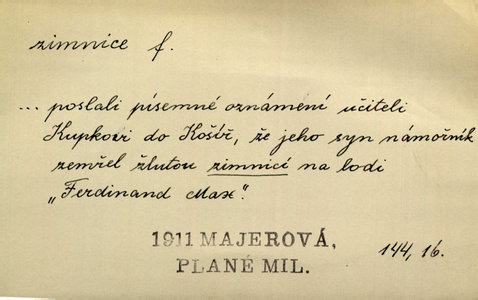 zimnice f.
... poslali písemné oznámení učiteli
Kupkovi do Košíř, že jeho syn námořník
zemřel žlutou zimnicí na lodi
„Ferdinand Max".
1911 MAJEROVÁ,
PLANÉ MIL.
144, 16.